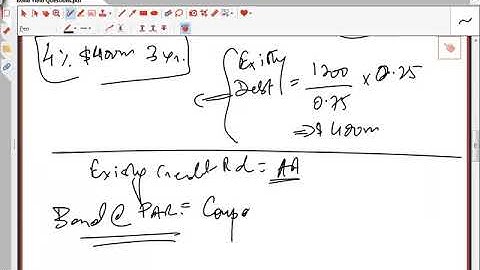 4% $400m 3 yr.
Existy
Debt = 1200 / 0.75 × 0.25
⇒ $400m
Existy Credit Rd = AA
Bond @ PAR = Coupo